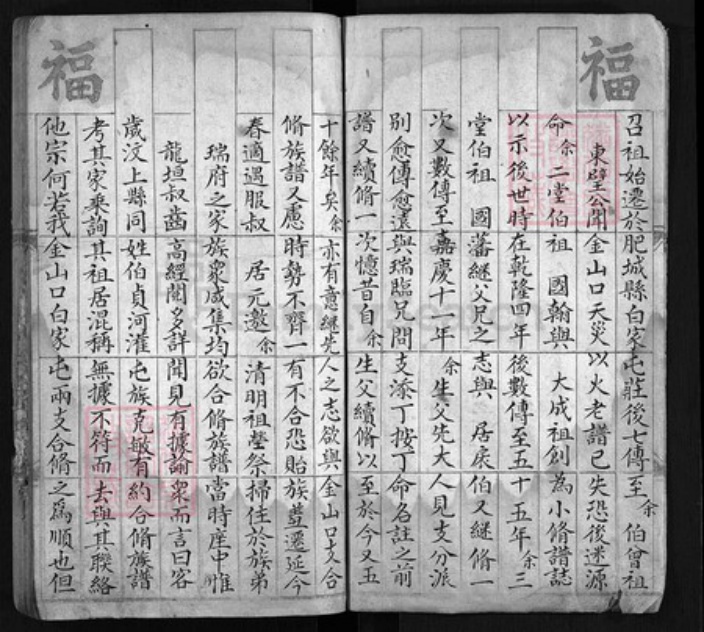 福
召祖始遷於肥城縣白家屯莊後七傳至余 伯曾祖
東壁公聞金山口天災以火老譜已失恐後迷源
命余二堂伯祖 國翰與 大成祖創為小脩譜誌
以示後世時在乾隆四年後數傳至五十五年余三
堂伯祖 國藩継父兄之志與 居扆伯又継脩一
次又數傳至嘉慶十一年 余生父先大人見支分派
別愈傳愈遠與瑞臨兄問支添丁按丁命名註之前
譜又續脩一次憶昔自余生父續脩以至於今又五
福
十餘年矣余亦有意継先人之志欲與金山口支合
脩族譜又慮時勢不齊一有不合恐貽族羞遷延今
春適遇服叔 居元邀余清明祖塋祭掃住於族弟
瑞府之家族眾咸集均欲合脩族譜當時座中惟
龍垣叔齒高經閱多詳聞見有據諭眾而言曰客
歲汶上縣同姓伯貞河灌屯族克敏有約合脩族譜
考其家乘詢其祖居混稱無據不符而去與其聯絡
他宗何若我金山口白家屯兩支合脩之為順也但